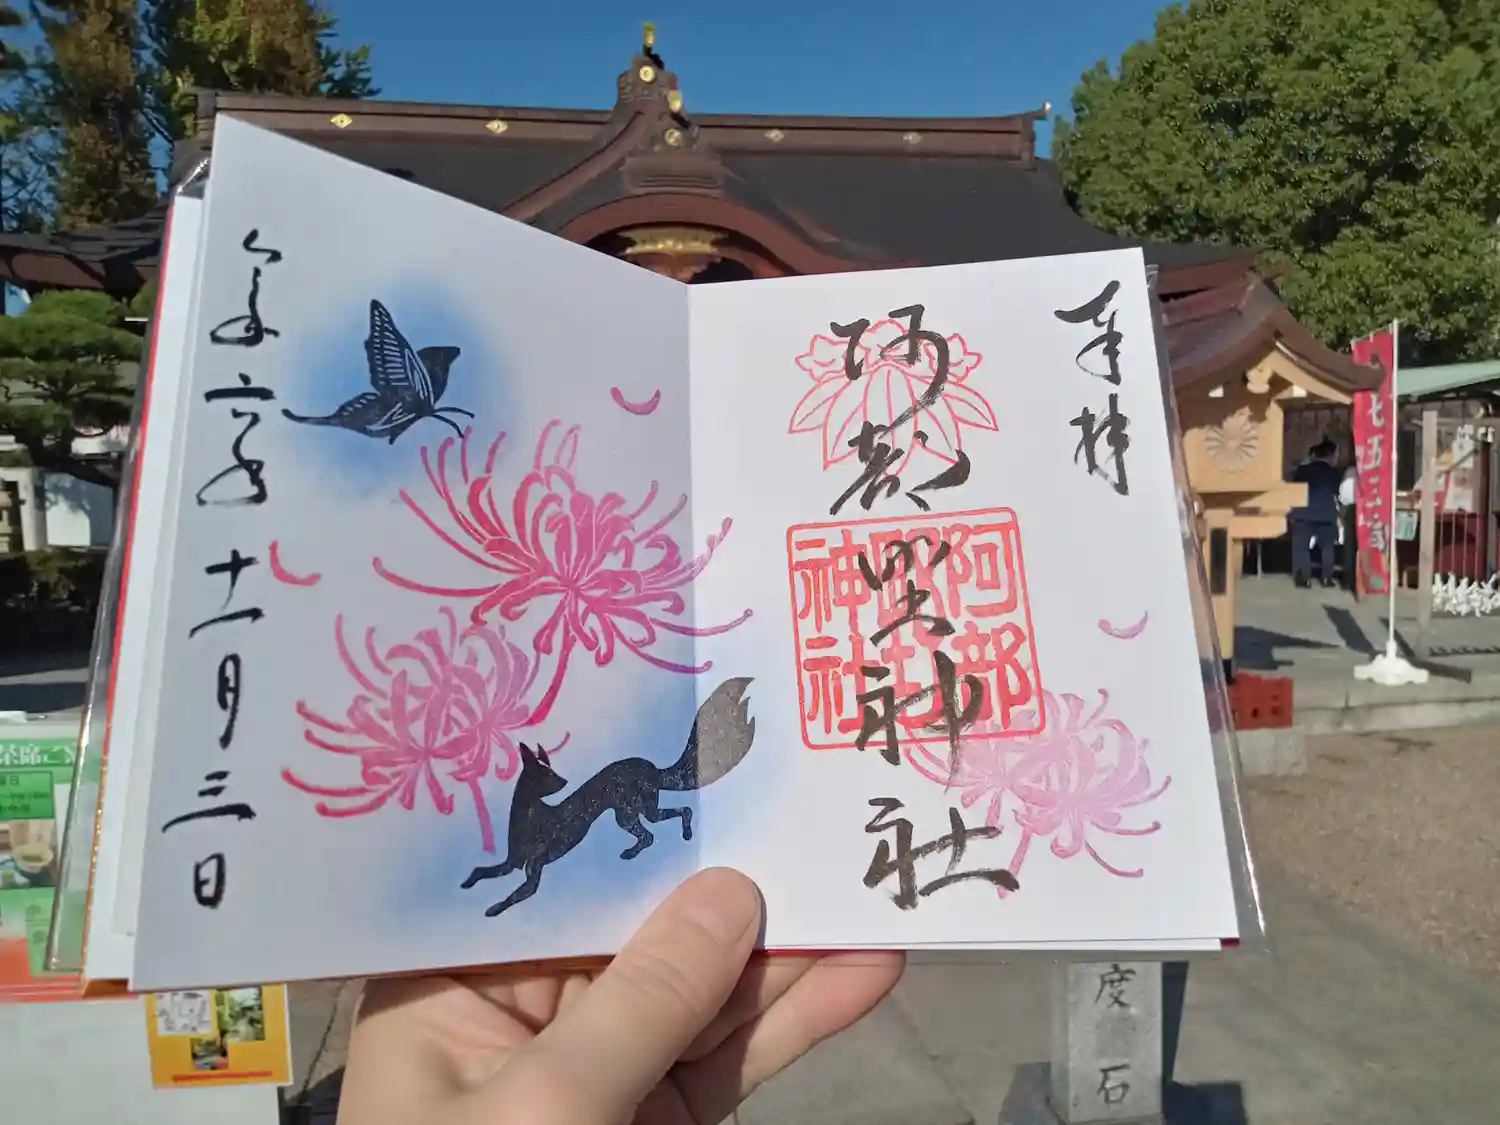 奉拝
阿部野神社
阿部
野
神社
令和六年十一月三日
七五三
茶席
度石